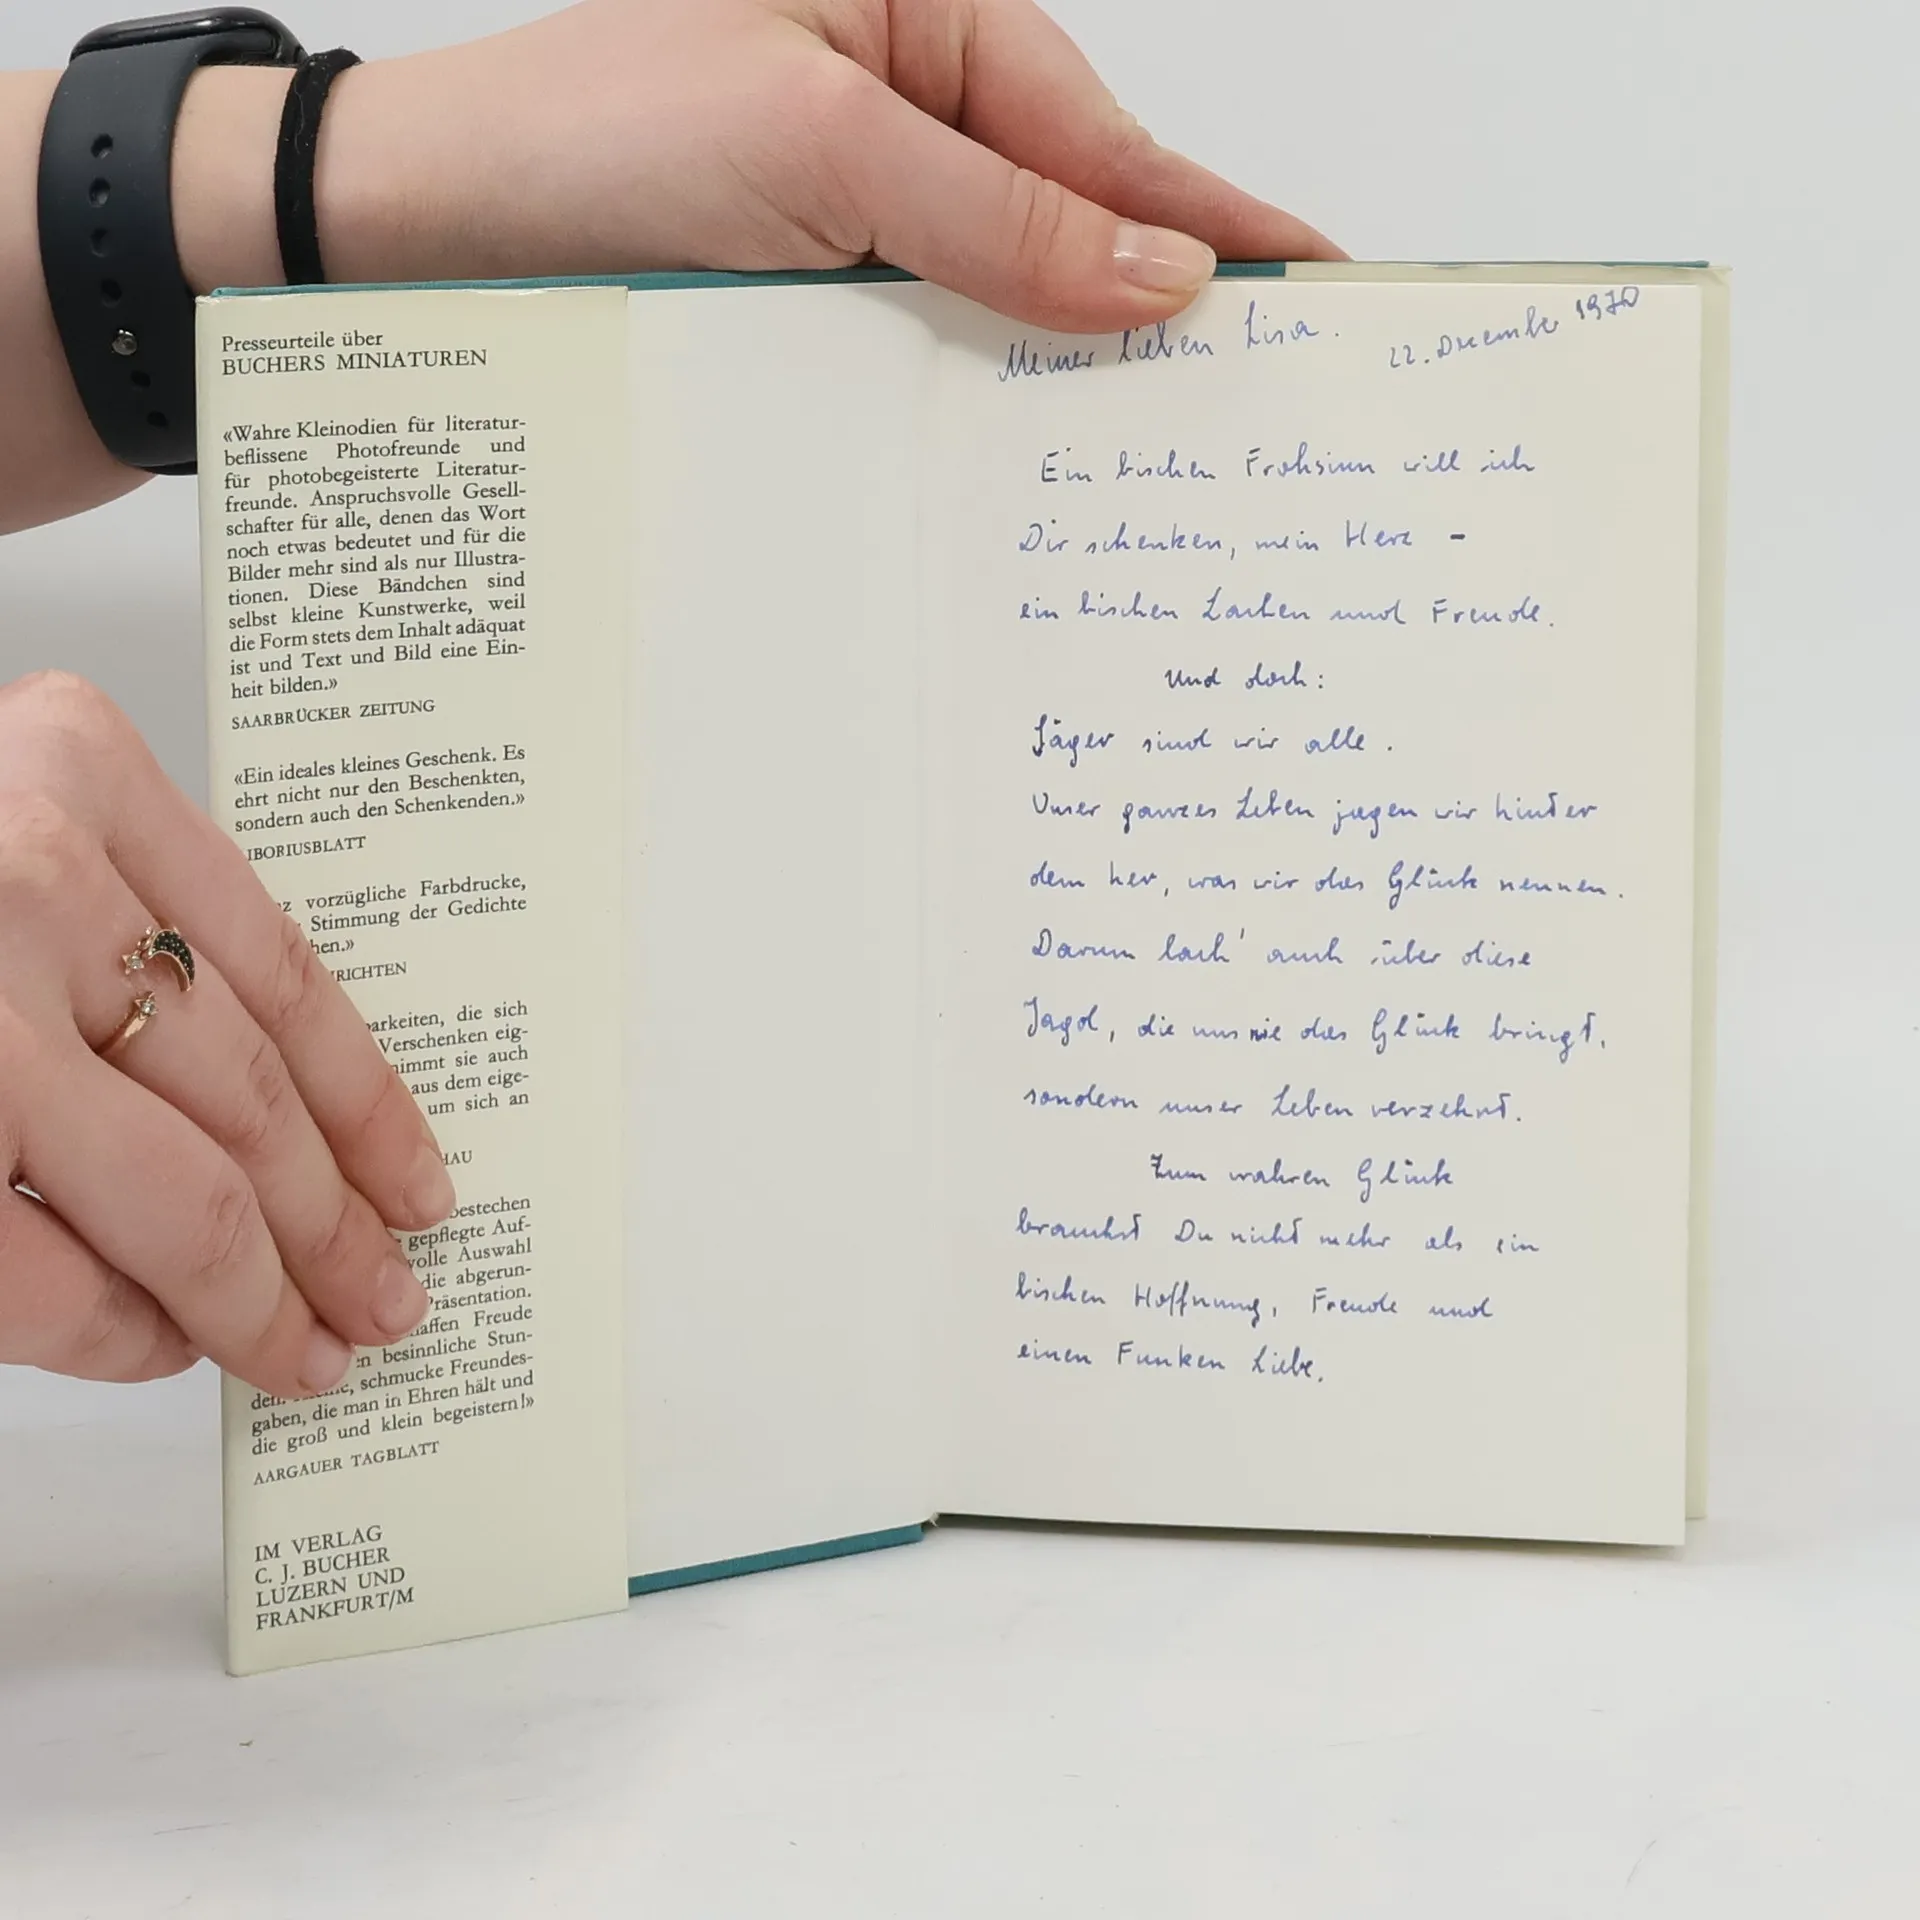 Presseurteile über
BUCHERS MINIATUREN
«Wahre Kleinodien für literatur-
beflissene Photofreunde und
für photobegeisterte Literatur-
freunde. Anspruchsvolle Gesell-
schafter für alle, denen das Wort
noch etwas bedeutet und für die
Bilder mehr sind als nur Illustra-
tionen. Diese Bändchen sind
selbst kleine Kunstwerke, weil
die Form stets dem Inhalt adäquat
ist und Text und Bild eine Ein-
heit bilden.»
SAARBRÜCKER ZEITUNG
«Ein ideales kleines Geschenk. Es
ehrt nicht nur den Beschenkten,
sondern auch den Schenkenden.»
IBORIUSBLATT
vorzügliche Farbdrucke,
Stimmung der Gedichte
hen.»
RICHTEN
arkeiten, die sich
Verschenken eig-
nimmt sie auch
aus dem eige-
um sich an
HAU
bestechen
gepflegte Auf-
volle Auswahl
die abgerun-
Präsentation.
haffen Freude
besinnliche Stun-
den. schmucke Freundes-
gaben, die man in Ehren hält und
die groß und klein begeistern!»
AARGAUER TAGBLATT
IM VERLAG
C. J. BUCHER
LUZERN UND
FRANKFURT/M
Meiner lieben Lisa. 22. Dezember 1970
Ein bischen Frohsinn will ich
Dir schenken, mein Herz -
ein bischen Lachen und Freude.
Und doch:
Jäger sind wir alle.
Unser ganzes Leben jagen wir hinter
dem her, was wir das Glück nennen.
Darum lach' auch über diese
Jagd, die uns nie das Glück bringt,
sondern unser Leben verzehrt.
Zum wahren Glück
brauchst Du nicht mehr als ein
bischen Hoffnung, Freude und
einen Funken Liebe.